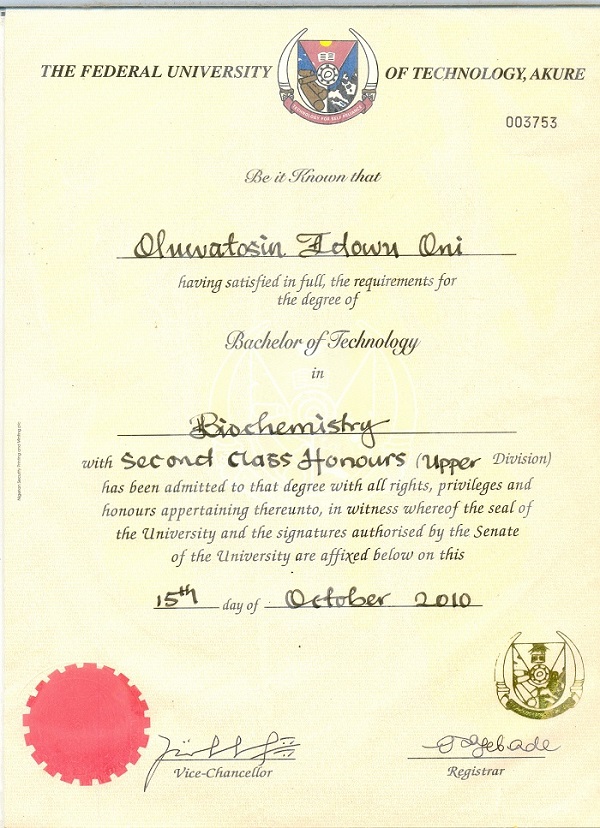 THE FEDERAL UNIVERSITY OF TECHNOLOGY, AKURE
TECHNOLOGY FOR SELF RELIANCE
003753
Be it Known that
Oluwatosin Idowu Oni
having satisfied in full, the requirements for
the degree of
Bachelor of Technology
in
Biochemistry
with Second Class Honours (Upper Division)
has been admitted to that degree with all rights, privileges and
honours appertaining thereunto, in witness whereof the seal of
the University and the signatures authorised by the Senate
of the University are affixed below on this
15th day of October 2010
Vice-Chancellor
Registrar